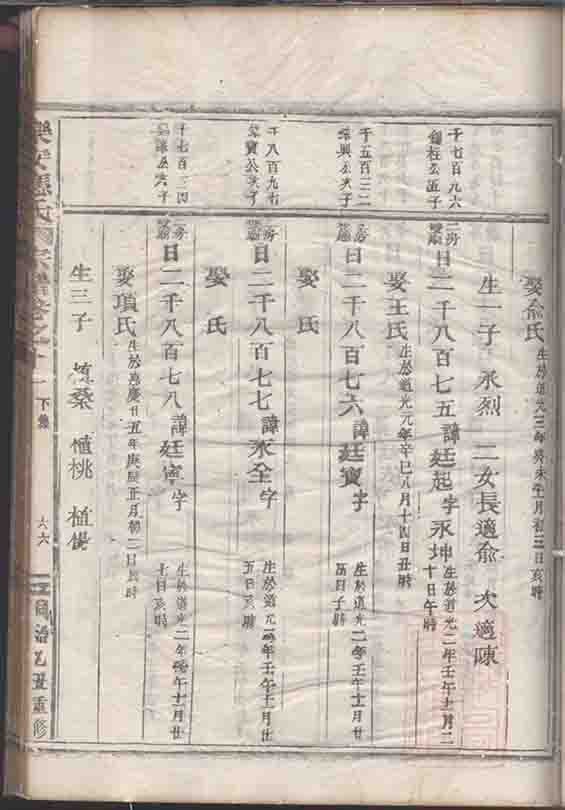 娶俞氏 生於道光三年癸未十月初三日亥時
生一子 永烈 二女長適俞 次適陳
千七百九六
二房
日二千八百七五諱廷起字永坤 生於道光二年壬午十月二十日午時
娶王氏 生於道光元年辛巳八月十四日丑時
千五百二二
興公次子
二房
日二千八百七六諱廷寶字 生於道光二年壬午十一月廿五日子時
娶氏
千八百九七
寶公次子
二房
日二千八百七七諱永全字 生於道光二年壬午十二月廿五日亥時
娶氏
千七百三四
公次子
二房
日二千八百七八諱廷寧字 生於道光二年壬午十一月廿七日亥時
娶項氏 生於嘉慶廿五年庚辰正月初二日辰時
生三子 桑 植桃 植
樂安 氏 宗譜卷之十一 下集 六六 同治乙丑重修